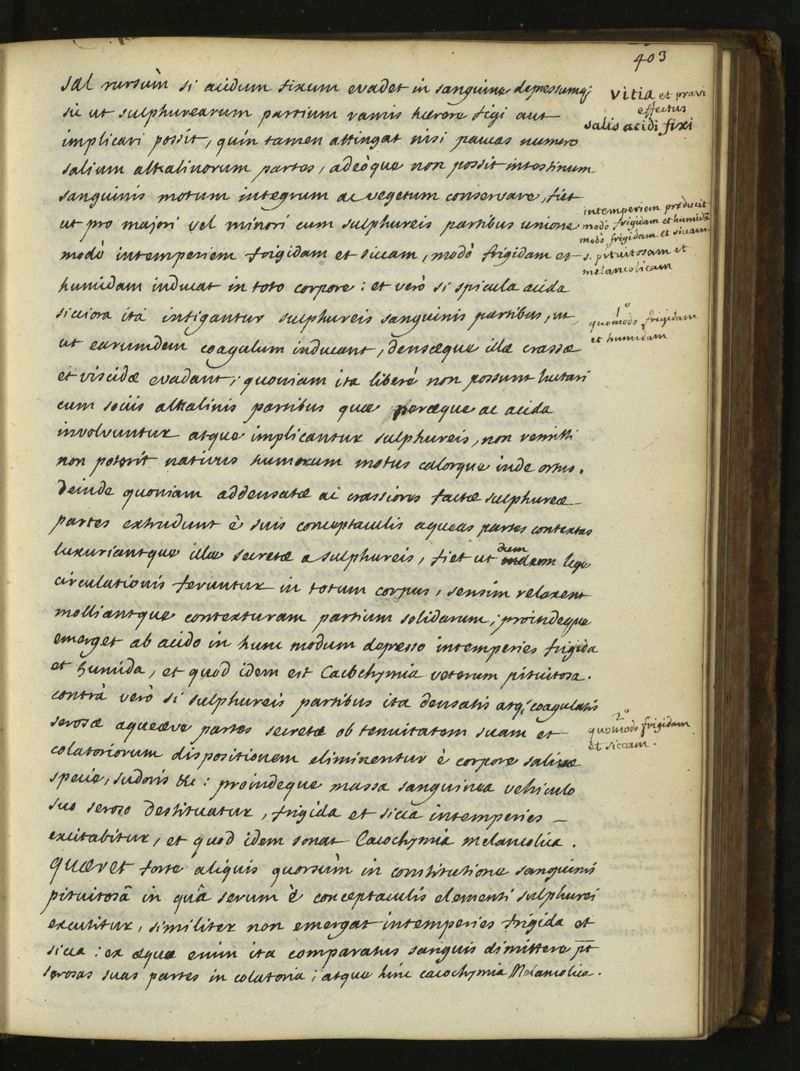 403
Sal rursùm si acidum fixum evadet in sanguine depressumq;
sic ut sulphurearum partium ramis hærere figi aut
implicari possit, quin tamen attingat nisi paucas numero
salium alkalinorum partes, adeòque non possit intestinum
sanguinis motum integrum ac vegetum conservare, fiet
ut pro majori vel minori cum sulphureis partibus unione
modò intemperiem frigidam et siccam, modò frigidam et
humidam inducat in toto corpore: et verò si spicula acida
sicciora ità infigantur sulphureis sanguinis partibus, ut
ut earumdem coagulum inducant, densæque illæ crassæ
et viscidæ evadant; quoniam ita liberè non possunt luctari
cum sociis alkalinis partibus quæ peræque ac acida
involvuntur atque implicantur sulphureis, non remitti
non poterit nativus humorum motus calorque inde ortus.
Deinde quoniam addensatæ ac crassiores factæ sulphureæ
partes extrudunt è suis conceptaculis aqueas partes contextas
luxuriantque illæ secretæ a sulphureis, fiet ut dum eadem lege
circulationis feruntur in totum corpus, sensim relaxent
molliantque contexturam partium solidarum; proindeque
emerget ab acido in hunc modum depresso intemperies frigida
et humida, et quod idem est Cacochymia veterum pituitosa.
contrà verò si sulphureis partibus ita densatis atq; coagulatis
serosæ aqueæve partes secretæ ob tenuitatem suam et
colatoriorum dispositionem eliminentur è corpore salivæ
specie, sudoris &c: proindeque massa sanguinea vehiculo
suo seroso destituatur, frigida et sicca intemperies –
excitabitur, et quod idem sonat Cacochymia melancolica.
Quæret forte aliquis quorsùm in constitutione sanguinis
pituitosâ in quâ serum è conceptaculis elementi sulphurei
excutitur, similiter non emergat intemperies frigida et
sicca: ex æquo enim ita comparatus sanguis dimittere pt
serosas suas partes in colatoria; atque hinc cacochymia Melancolica.
vitia et pravi
effectus
salis acidi fixi
intemperiem producit
modò frigidam et humidã
modò frigidam et siccam.
s. pituitosam et
melancolicam
1º
quomodo frigidam
et humidam
2º
quomodo frigidam
et siccam.